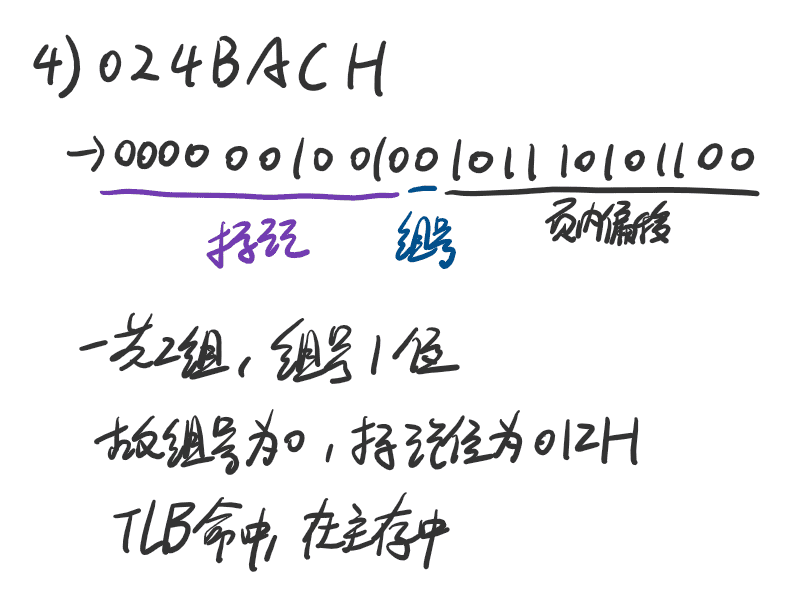 4) 024BACH
→ 0000 0010 0100 1011 1010 1100
标记 组号 页内偏移
一共2组, 组号1位
故组号为0, 标记位为012H
TLB命中, 在主存中